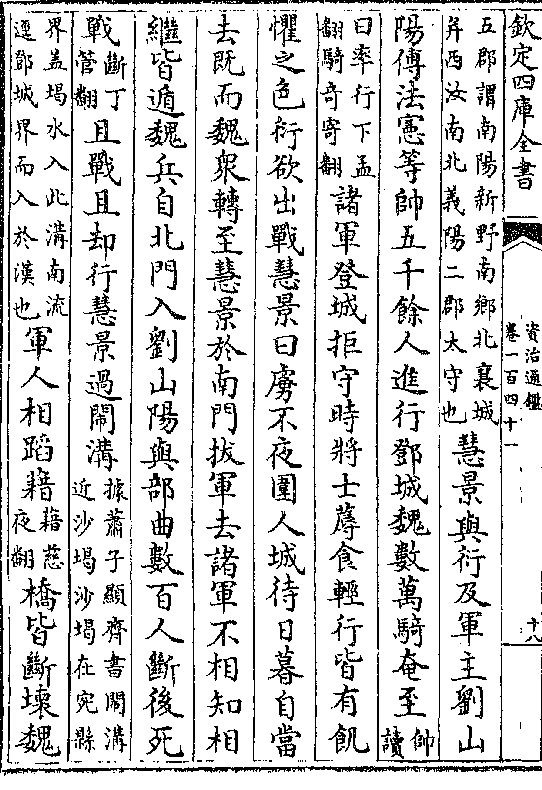 欽定四庫全書
資治通鑑
卷一百四十一
十八
五郡謂南陽新野南鄉北襄城
并西汝南北義陽二郡太守也
慧景與衍及軍主劉山
陽傅法憲等帥五千餘人進行鄧城魏數萬騎奄至
帥
讀
曰率行下孟
翻騎奇寄翻
諸軍登城拒守時將士蓐食輕行皆有飢
懼之色衍欲出戰慧景曰虜不夜圍人城待日暮自當
去既而魏衆轉至慧景於南門拔軍去諸軍不相知相
繼皆遁魏兵自北門入劉山陽與部曲數百人斷後死
戰
斷丁
管翻
且戰且却行慧景過閙溝
據蕭子顯齊書閙溝
近沙堨沙堨在宛縣
界盖堨水入此溝南流
逕鄧城界而入於漢也
軍人相蹈藉
藉慈
夜翻
橋皆斷壞魏